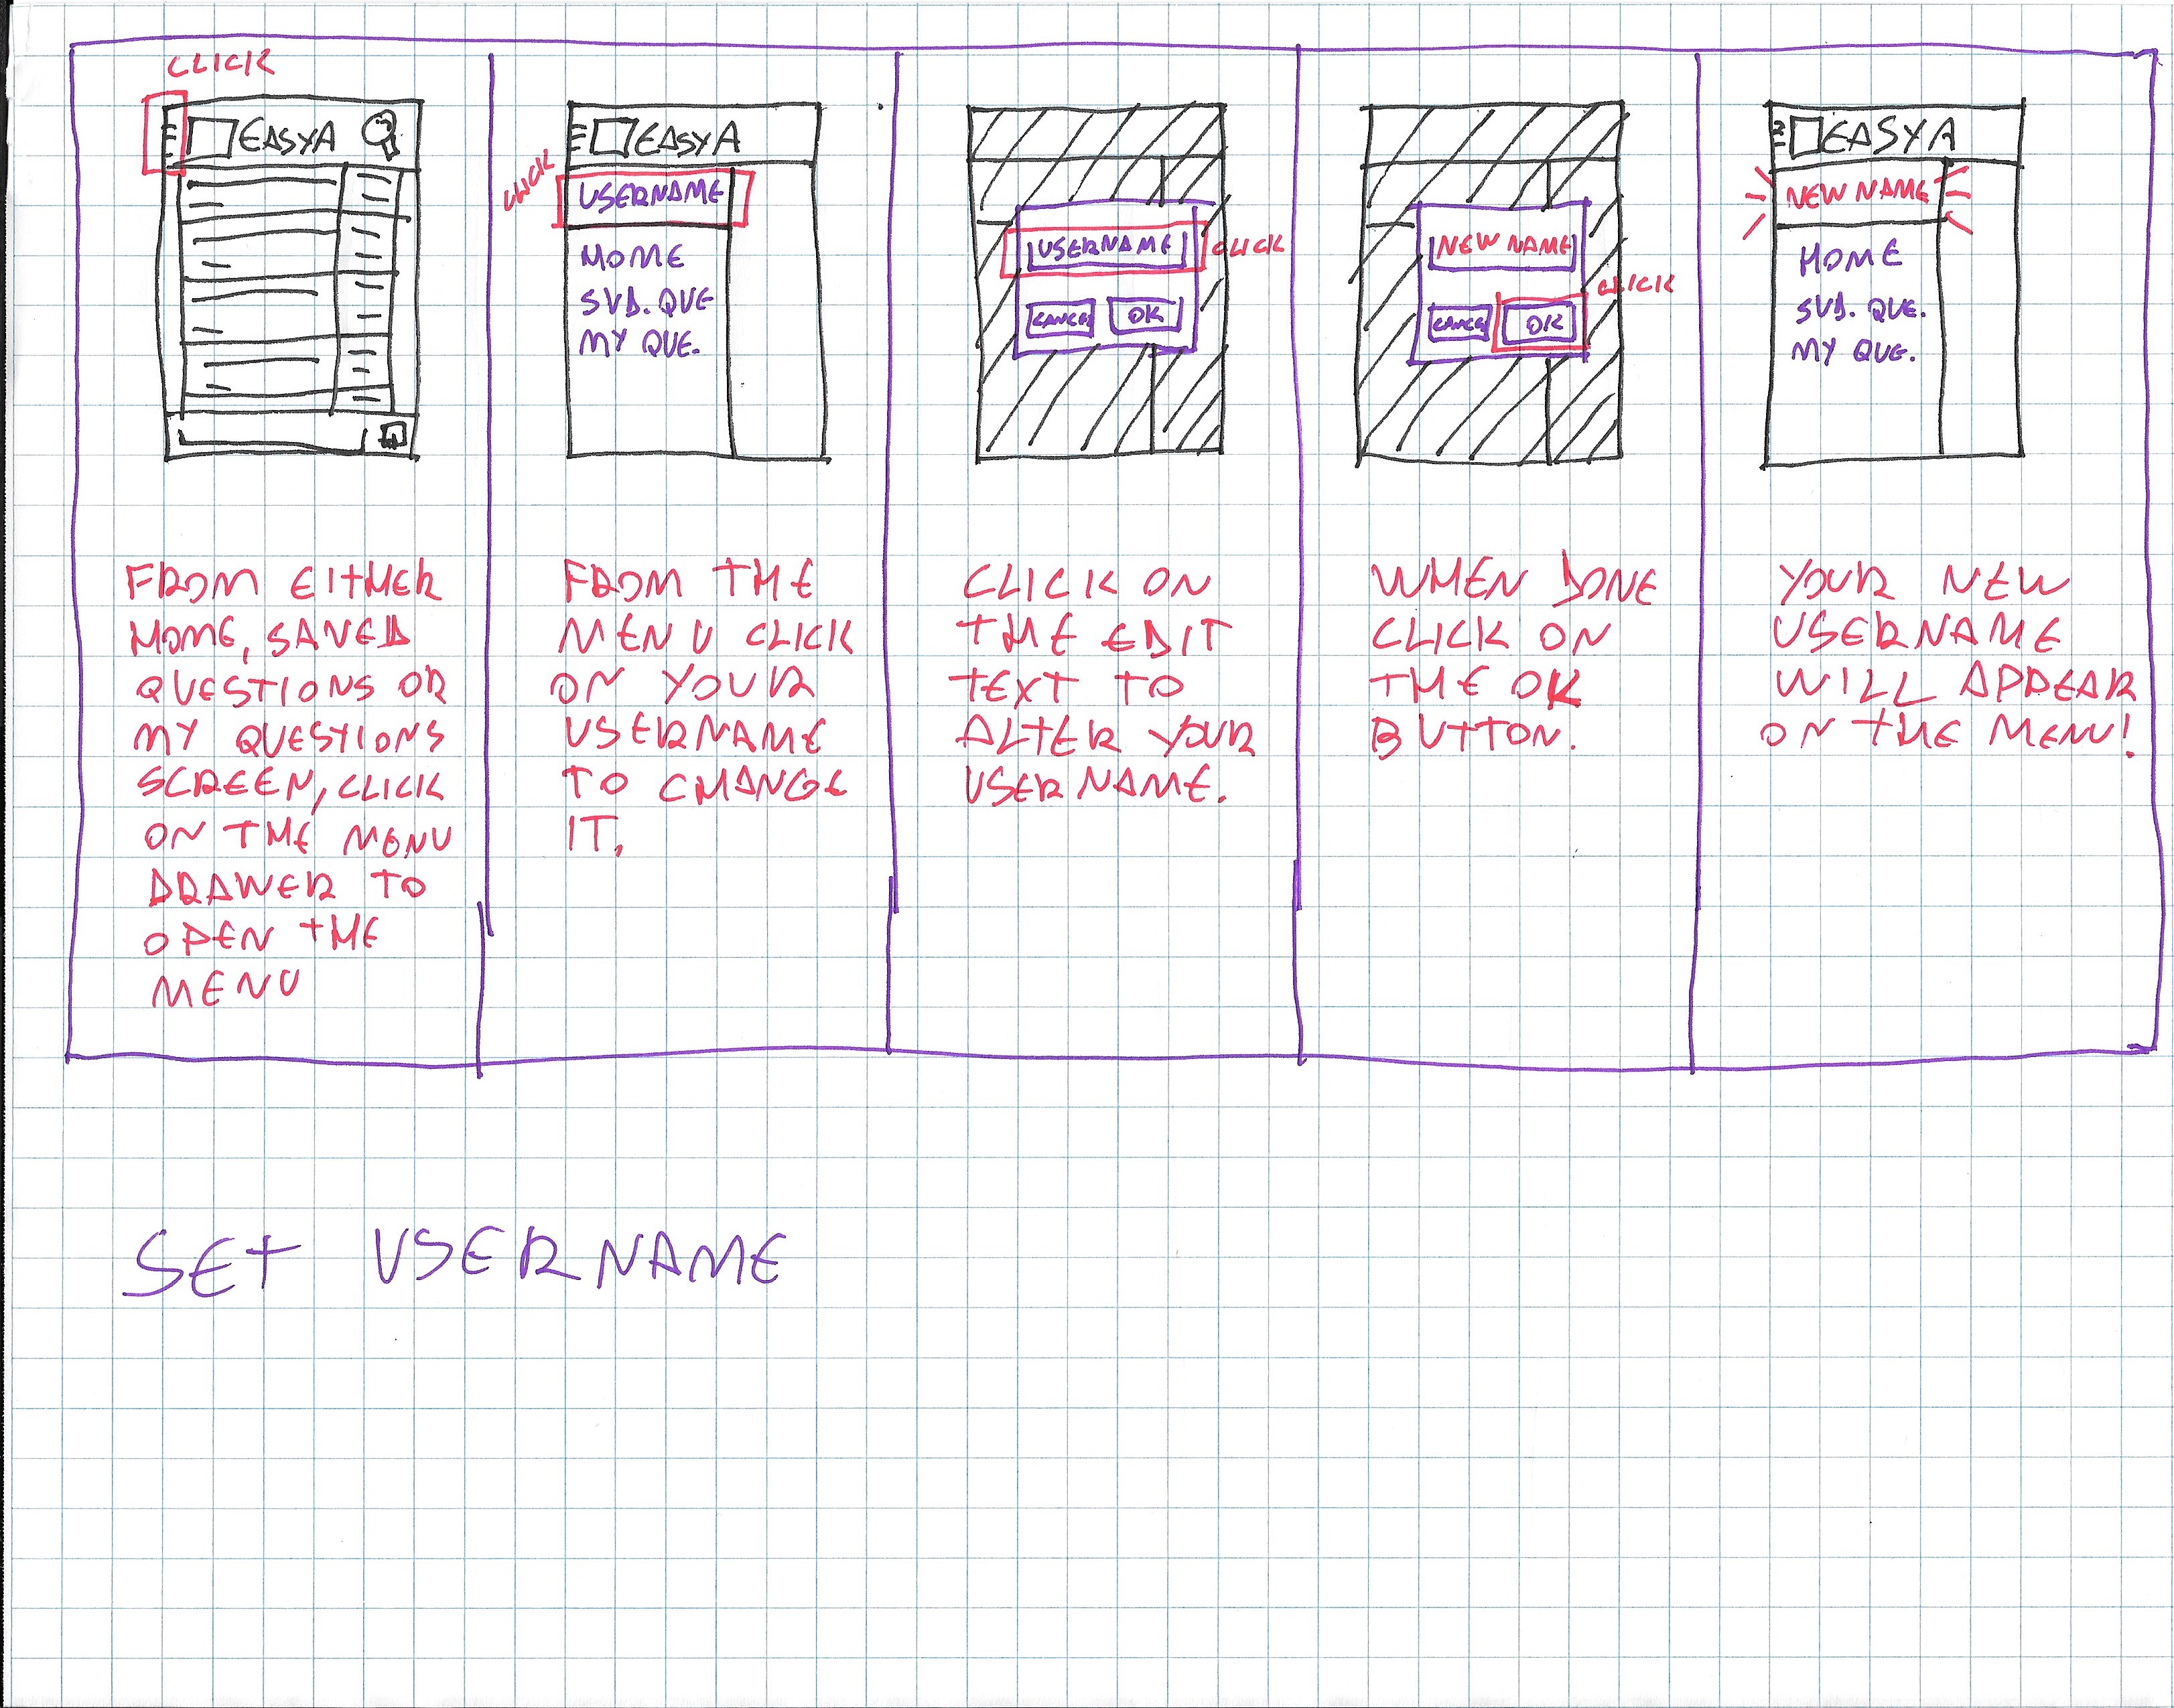 CLICK
EASYA
FROM EITHER
HOME, SAVED
QUESTIONS OR
MY QUESTIONS
SCREEN, CLICK
ON THE MENU
DRAWER TO
OPEN THE
MENU
EASYA
CLICK
USERNAME
HOME
SVD. QUE
MY QUE.
FROM THE
MENU CLICK
ON YOUR
USERNAME
TO CHANGE
IT.
USERNAME
CLICK
CANCEL
OK
CLICK ON
THE EDIT
TEXT TO
ALTER YOUR
USERNAME.
NEW NAME
CLICK
CANCEL
OK
WHEN DONE
CLICK ON
THE OK
BUTTON.
EASYA
NEW NAME
HOME
SVD. QUE.
MY QUE.
YOUR NEW
USERNAME
WILL APPEAR
ON THE MENU!
SET USERNAME